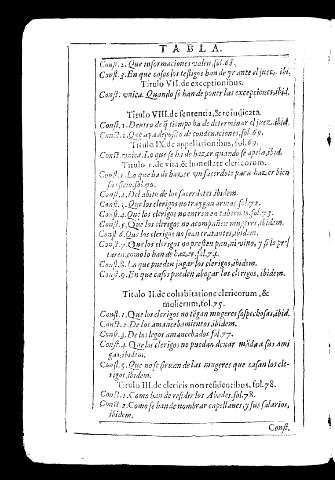 TABLA.
Const. 2. Que informaciones valen, fol. 68.
Const. 3. En que casos los testigos han de yr ante el juez. ibi.
Titulo VII. de exceptionibus.
Const. vnica. Quando se han de poner las exceptiones, ibid.
Titulo VIII. de sententia, & re iudicata.
Const. 1. Dentro de q̃ tiempo ha de determinar el juez. ibid.
Const. 2. Que aya deposito de condenaciones, fol. 69.
Titulo IX. de appellationibus, fol. 69.
Const. vnica. Lo que se ha de hazer quando se apela, ibid.
Titulo 1. de vita, & honestate clericorum.
Const. 1. Lo que ha de hazer vn sacerdote para hazer bien
su oficio, fol. 70.
Const. 2. Del abito de los sacerdotes, ibidem.
Const. 3. Que los clerigos no traygan armas fol. 72.
Const. 4. Que los clerigos no entren en tabernas. fol. 73.
Const. 5. Que los clerigos no acompañen mugeres, ibidem.
Const. 6. Que los clerigos no sean tratantes, ibidem.
Const. 7. Que los clerigos no presten pan, ni vino, y si lo pres
taren, como lo han de hazer. fol. 74.
Const. 8. Lo que pueden jugar los clerigos, ibidem.
Const. 9. En que casos pueden abogar los clerigos, ibidem.
Titulo II. de cohabitatione clericorum, &
mulierum, fol. 75.
Const. 1. Que los clerigos no tẽgan mugeres sospechosas, ibid.
Const. 2. De los amancebamientos, ibidem.
Const. 3. De los legos amancebados fol. 77.
Const. 4. Que los clerigos no puedan dexar mãda a sus ami
gas, ibidem.
Const. 5. Que no se siruan de las mugeres que casan los cle-
rigos, ibidem.
Titulo III. de clericis non residentibus, fol. 78.
Const. 1. Como han de residir los Abades, fol. 78.
Const. 2. Como se han de nombrar capellanes, y sus salarios,
ibidem.
Const.